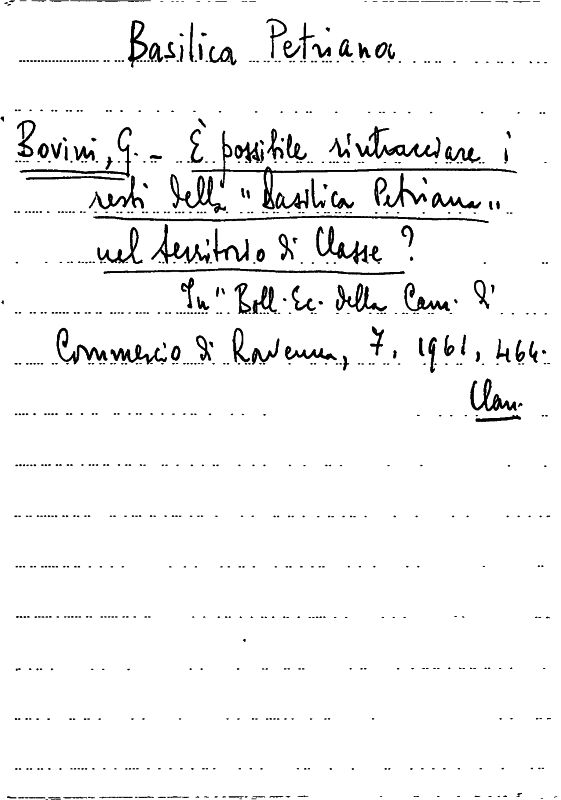 Basilica Petriana
Bovini, G. - È possibile rintracciare i
resti della "Basilica Petriana"
nel territorio di Classe?
In "Boll. Ec. della Cam. di
Commercio di Ravenna, 7, 1961, 464.